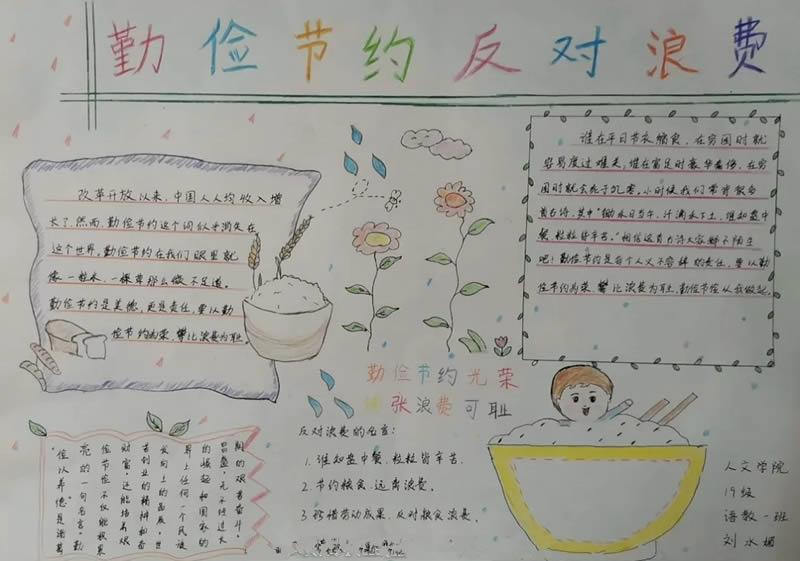 勤俭节约反对浪费
改革开放以来，中国人人均收入增
长了，然而，勤俭节约这个词似乎消失在
这个世界，勤俭节约在我们眼里就
像一粒米，一棵草那么微不足道。
勤俭节约是美德，更是责任，要以勤
俭节约为荣，攀比浪费为耻。
谁在平日节衣缩食，在穷困时就
容易度过难关；谁在富足时豪华奢侈，在穷
困时就会死于饥寒。小时候我们常背
首古诗，其中"锄禾日当午，汗滴禾下土，谁知盘中
餐，粒粒皆辛苦。"相信这首古诗大家都不陌生
吧！勤俭节约是每个人义不容辞的责任，要以勤
俭节约为荣，攀比浪费为耻，勤俭节俭从我做起。
勤俭节约光荣
铺张浪费可耻
反对浪费的名言：
1. 谁知盘中餐，粒粒皆辛苦。
2. 节约粮食，远离浪费。
3. 珍惜劳动成果，反对粮食浪费。
期的艰苦奋斗。
昌盛，无不经过长
的崛起和国家的
界上任何一个民族
发向上的品质。世
苦创业的精神和奋
财富，还能培养艰
俭节俭不仅能积累
亮的一句名言。勤
"俭以养德"是诸葛
人文学院
19级
语教一班
刘水媚